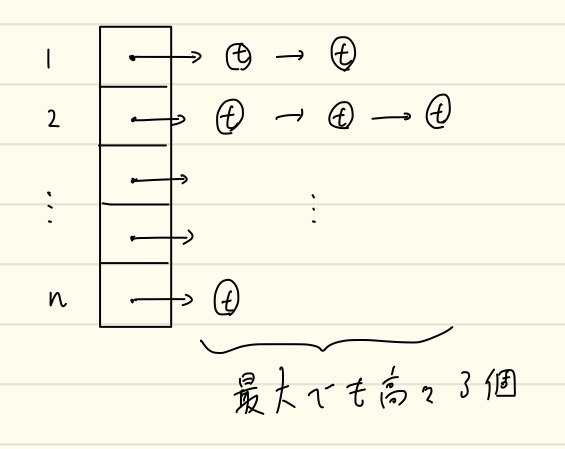 1 t → t
2 t → t → t
⋮ ⋮
n t
最大でも高々3個